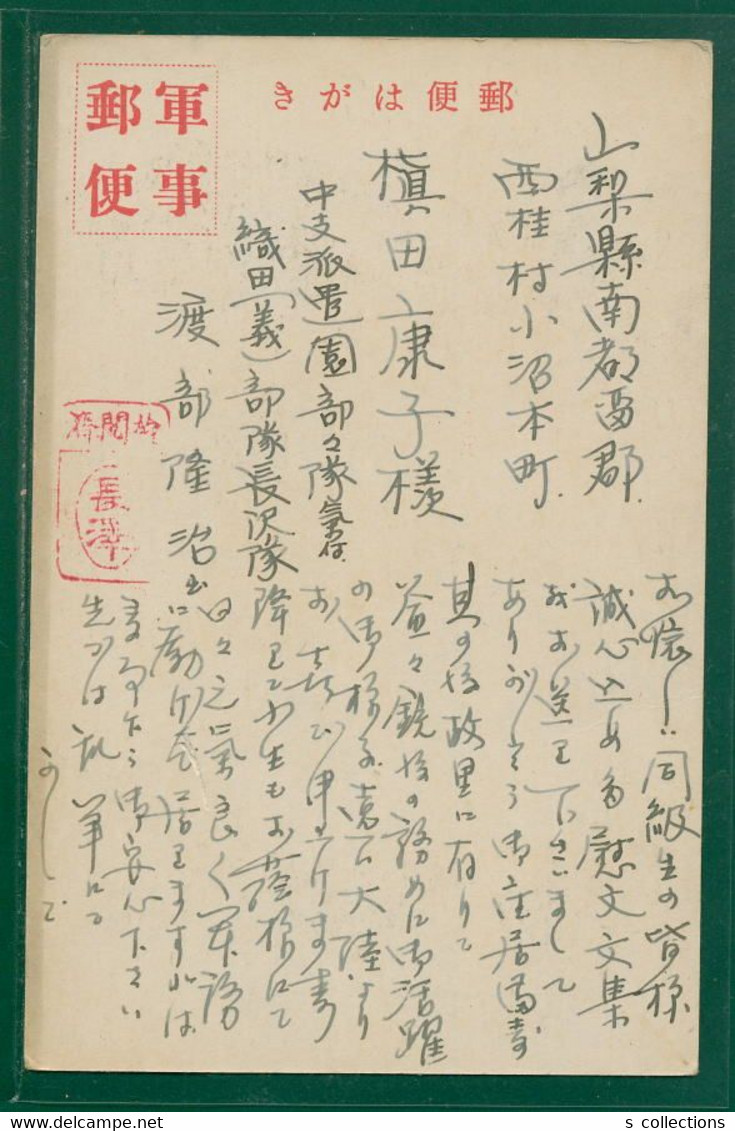 郵便はがき
軍事
郵便
山梨縣南都留郡
西桂村小沼本町
槇田康子様
中支派遣園部々隊氣付
織田(義)部隊長沢隊
渡部隆治
お懐しい同級生の皆様
誠心込めた慰文文集
お送り下さいまして
ありがとう
其の後故里に有りて
益々銃後の務めに御活躍
の御様子遠く大陸より
お喜び申上げます
降りて小生もお蔭様にて
日々元氣良く軍務
に励んで居りますれば
御安心下さい
先づは乱筆にて
検閲済
長澤
s collections